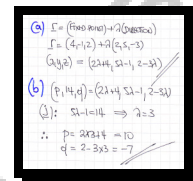 (a) r = (FIXED POINT) + λ(DIRECTION)
r = (4,-1,2) + λ(2,5,-3)
(x,y,z) = (2λ+4, 5λ-1, 2-3λ)
(b) (p,14,q) = (2λ+4, 5λ-1, 2-3λ)
(j): 5λ-1=14 ⇒ λ=3
∴ p= 2×3+4 = 10
q = 2-3×3 = -7